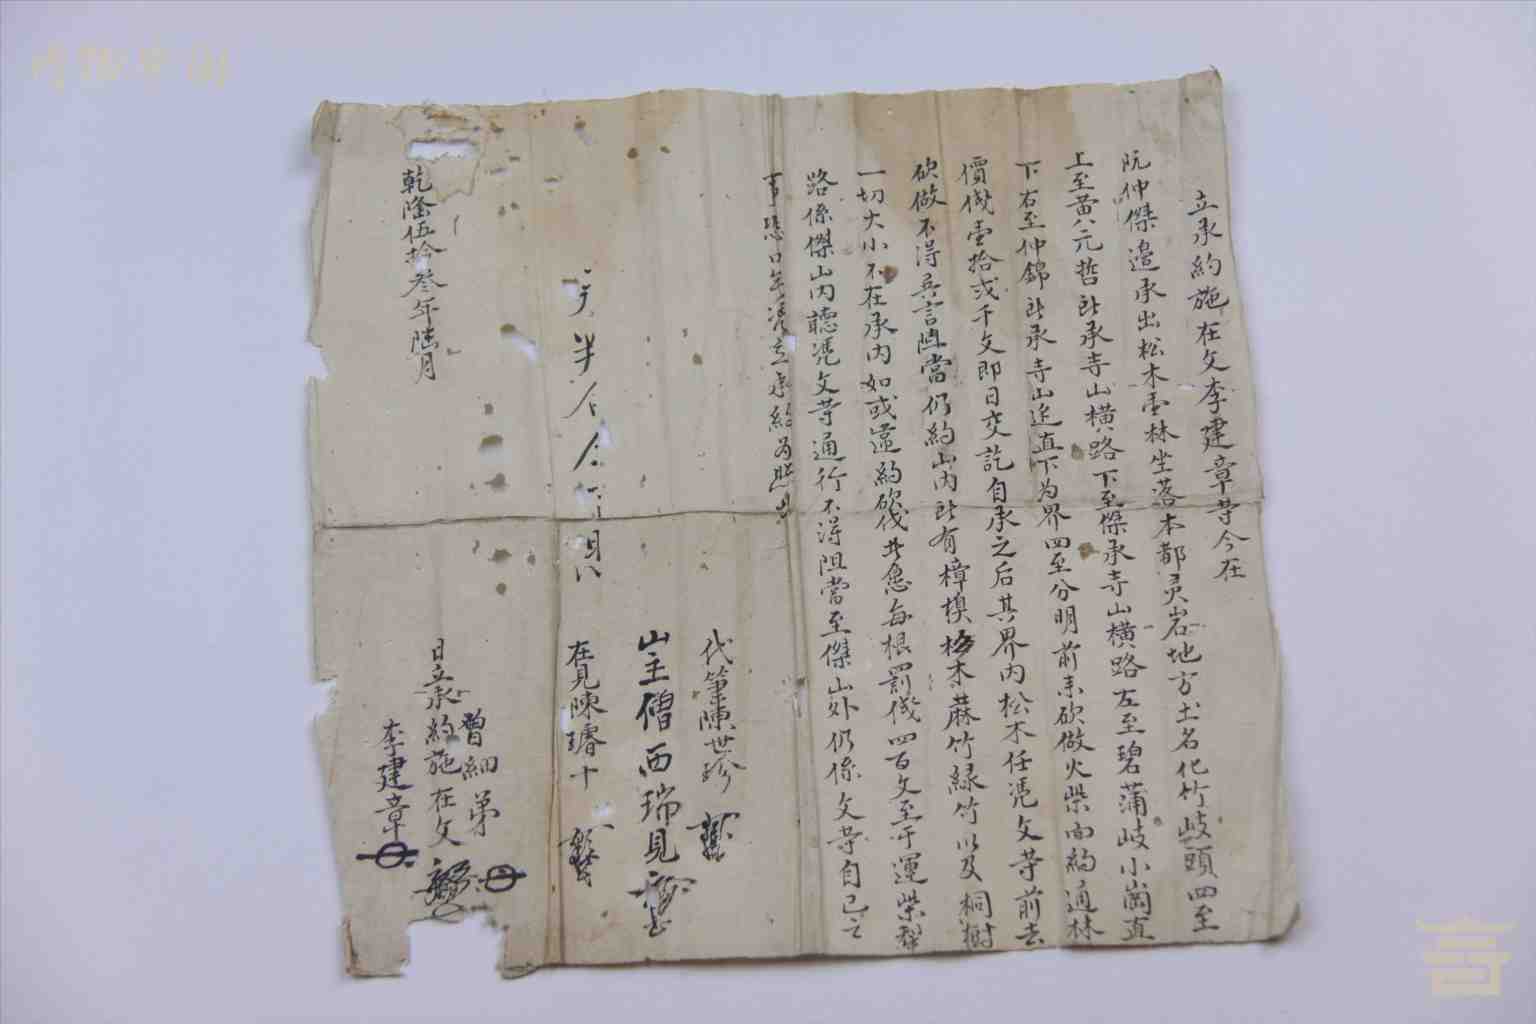 立承約施在文李建章等今在
阮仲傑邉承出松木壹林坐落本都灵岩地方土名化竹岐頭四至
上至黄八元哲㽵承寺山横路下至傑承寺山横路左至碧蒲岐小崗直
下右至仲錦㽵承寺山迄直下为界四至分明前来砍做火柴面約通林
價伐壹拾弍千文即日交訖自承之后其界内松木任凴文等前去
砍做不得異言阻當仍約山内㽵有樟模杉木蔴竹緑竹以及桐樹
一切大小不在承内如或違約砍伐者每根罰伐四百文至于運柴
路係傑山内聴凴文等通行不得阻當至傑山外仍係文等自己之
事恐口無凴立承約为照
代筆陳世珍
山主僧西瑞見
在見陳璿十
乾隆伍拾叁年陆月
日立承約施在文
曽細弟
李建章